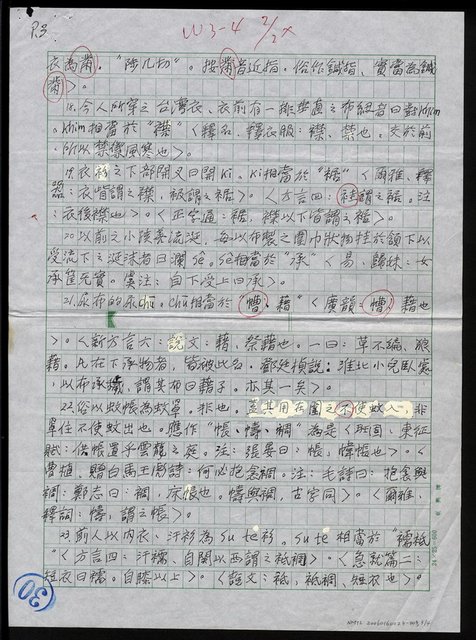 P.3
W3-4 2/2x
衣為黹。“陟几切"。按黹者近指。俗作鍼指、實當為鍼
黹>。
18.今人所穿之台灣衣、衣前有一排鈕之布紐者曰對khim
。khim相當於“襟"<釋名、釋衣服:襟、禁也。交於前
,所以禁禦風寒也>。
19.衣衫之下部開叉曰開ki。ki相當於“裾"<爾雅、釋
器:衣眥謂之襟,衱謂之裾>。<方言四:袿謂之裾。注
:衣後襟也>。<正字通:裾,襟以下皆謂之裾>。
20.以前之小孩養流涎,每以布製之圍巾狀物挂於頷下以
受流下之涎沫者曰瀾se。se相當於“承"<易、歸妹:女
承筐无實。虞注:自下受上曰承>。
21.尿布的尿chū。chū相當於“藉"<廣韻:藉也
>。<新方言六:說文:藉,祭藉也。一曰:草不編,狼
藉。凡在下承物者,皆被此名。鄭廷楨說:淮北小兒臥處
,以布承,謂其布曰藉子。亦其一矣>。
22.俗以蚊帳為蚊罩。非也。蓋其用在圍之不使蚊入,非
罩住不使蚊出也。應作“帳、幬、裯"為是<班固、東征
賦:供帳置乎雲龍之庭。注:張晏曰:帳,帷幔也>。<
曹植、贈白馬王彪詩:何必抱衾裯。注:毛詩曰:抱衾與
裯;鄭志曰:裯,床帳也。幬與裯,古字同>。<爾雅、
釋訓:幬,謂之帳>。
23.前人以內衣、汗衫為su te衫。su te相當於“襦袛
"<方言四:汗襦,自關以西謂之袛裯>。<急就篇二:
短衣曰襦。自膝以上>。<說文:袛,袛裯,短衣也>。
30